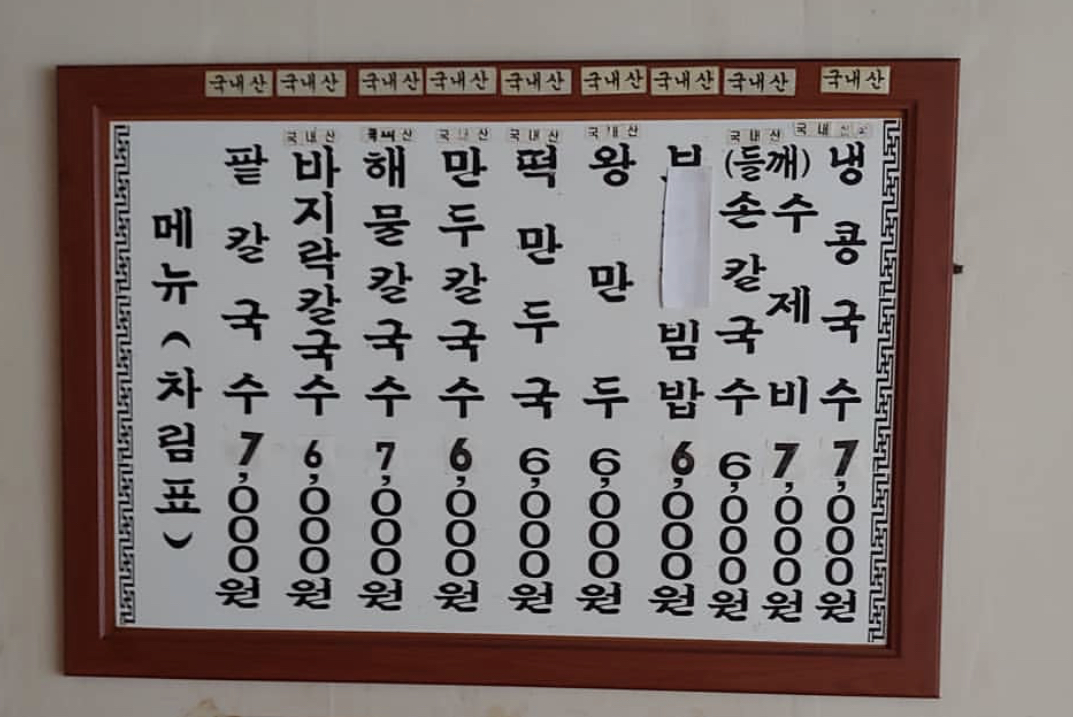 국내산 국내산 국내산 국내산 국내산 국내산 국내산 국내산 국내산
국내산 국내산 국내산 국내산 국내산
메뉴(차림표)
팥칼국수 7,000원
바지락칼국수 6,000원
해물칼국수 7,000원
만두칼국수 6,000원
떡만두국 6,000원
왕만두 6,000원
빔밥 6,000원
(들깨)
손칼국수 6,000원
수제비 7,000원
냉콩국수 7,000원